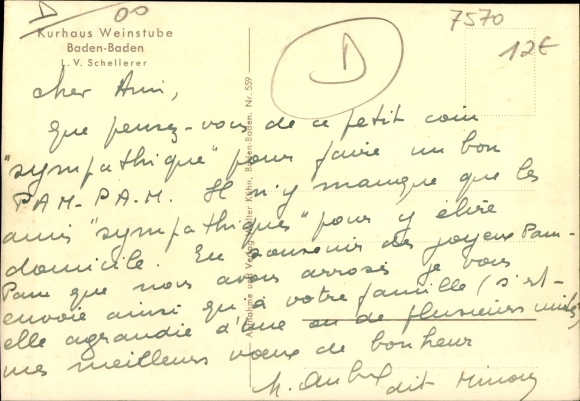 D 00
7570
12€
D
Kurhaus Weinstube
Baden-Baden
L. V. Schellerer
Aufnahme und Verlag Walter Kühn, Baden-Baden. Nr. 559
cher Ami,
que pensez-vous de ce petit coin
"sympathique" pour faire un bon
PAM-PAM. Il n'y manque que les
amis "sympathiques" pour y élire
domicile. En souvenir des joyeux Pam-
Pam que nous avons arrosés je vous
envoie ainsi qu'à votre famille (s'est-
elle agrandie d'une ou de plusieurs unités)
mes meilleurs vœux de bonheur
M. dit